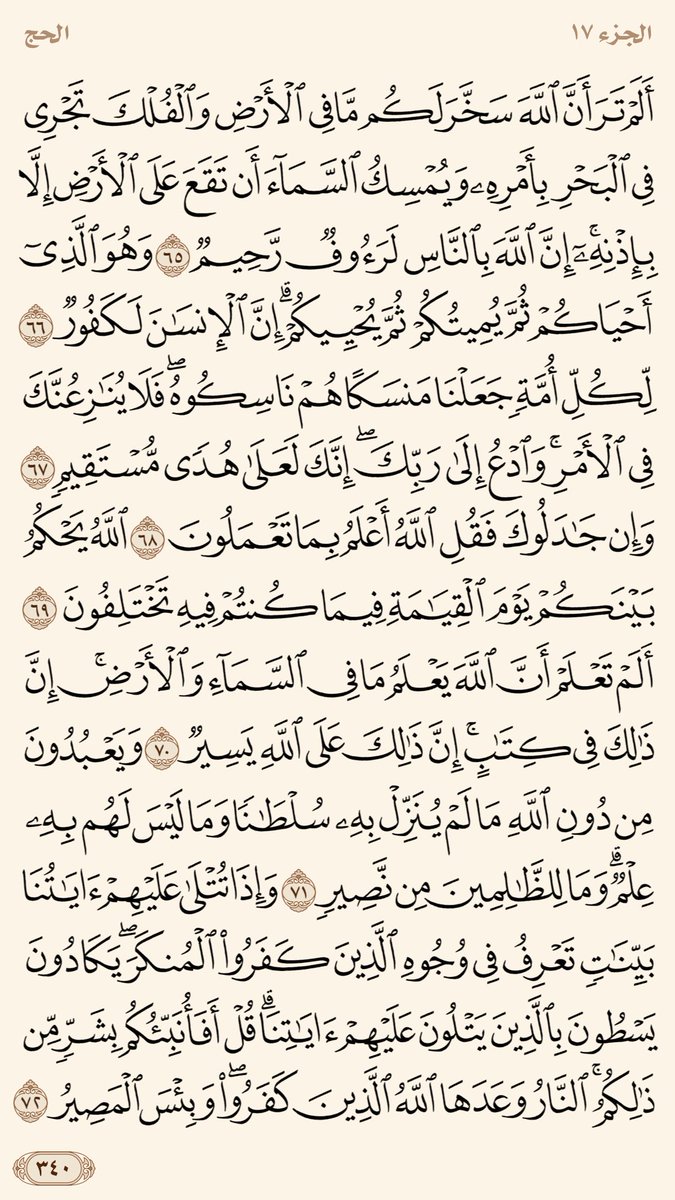 الجزء ١٧
الحج
أَلَمْ تَرَ أَنَّ ٱللَّهَ سَخَّرَ لَكُم مَّا فِى ٱلْأَرْضِ وَٱلْفُلْكَ تَجْرِى
فِى ٱلْبَحْرِ بِأَمْرِهِۦ وَيُمْسِكُ ٱلسَّمَآءَ أَن تَقَعَ عَلَى ٱلْأَرْضِ إِلَّا
بِإِذْنِهِۦٓ ۚ إِنَّ ٱللَّهَ بِٱلنَّاسِ لَرَءُوفٌ رَّحِيمٌ ٦٥ وَهُوَ ٱلَّذِىٓ
أَحْيَاكُمْ ثُمَّ يُمِيتُكُمْ ثُمَّ يُحْيِيكُمْ ۗ إِنَّ ٱلْإِنسَـٰنَ لَكَفُورٌ ٦٦
لِّكُلِّ أُمَّةٍ جَعَلْنَا مَنسَكًا هُمْ نَاسِكُوهُ ۖ فَلَا يُنَـٰزِعُنَّكَ
فِى ٱلْأَمْرِ ۚ وَٱدْعُ إِلَىٰ رَبِّكَ ۖ إِنَّكَ لَعَلَىٰ هُدًى مُّسْتَقِيمٍ ٦٧
وَإِن جَـٰدَلُوكَ فَقُلِ ٱللَّهُ أَعْلَمُ بِمَا تَعْمَلُونَ ٦٨ ٱللَّهُ يَحْكُمُ
بَيْنَكُمْ يَوْمَ ٱلْقِيَـٰمَةِ فِيمَا كُنتُمْ فِيهِ تَخْتَلِفُونَ ٦٩
أَلَمْ تَعْلَمْ أَنَّ ٱللَّهَ يَعْلَمُ مَا فِى ٱلسَّمَآءِ وَٱلْأَرْضِ ۗ إِنَّ
ذَٰلِكَ فِى كِتَـٰبٍ ۚ إِنَّ ذَٰلِكَ عَلَى ٱللَّهِ يَسِيرٌ ٧٠ وَيَعْبُدُونَ
مِن دُونِ ٱللَّهِ مَا لَمْ يُنَزِّلْ بِهِۦ سُلْطَـٰنًا وَمَا لَيْسَ لَهُم بِهِۦ
عِلْمٌ ۗ وَمَا لِلظَّـٰلِمِينَ مِن نَّصِيرٍ ٧١ وَإِذَا تُتْلَىٰ عَلَيْهِمْ ءَايَـٰتُنَا
بَيِّنَـٰتٍ تَعْرِفُ فِى وُجُوهِ ٱلَّذِينَ كَفَرُوا۟ ٱلْمُنكَرَ ۖ يَكَادُونَ
يَسْطُونَ بِٱلَّذِينَ يَتْلُونَ عَلَيْهِمْ ءَايَـٰتِنَا ۗ قُلْ أَفَأُنَبِّئُكُم بِشَرٍّ مِّن
ذَٰلِكُمُ ۚ ٱلنَّارُ وَعَدَهَا ٱللَّهُ ٱلَّذِينَ كَفَرُوا۟ ۖ وَبِئْسَ ٱلْمَصِيرُ ٧٢
٣٤٠